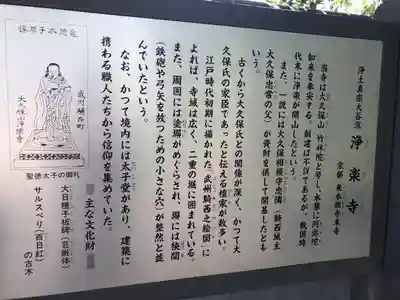 浄土真宗大谷派
浄楽寺
京都 東本願寺末寺
当寺は大久保山 竹林院と号し、本尊に阿弥陀
如来を奉安する。創建は不詳であるが、戦国時
代末に浄楽が開山したという。
また、一説には大久保相模守忠隣(騎西城主
大久保忠常の父)が資財を供して開基したとも
いう。
古くから大久保氏との関係が深く、かつて大
久保氏の家臣であったと伝える檀家が数多い。
江戸時代初期に描かれた「武州騎西之絵図」に
よれば、寺域は広く、二重の堀に囲まれている。
また、周囲には塗塀がめぐらされ、塀には狭間
(鉄砲や弓矢を放つための小さな穴)が整然と並
んでいたという。
なお、かつて境内には太子堂があり、建築に
携わる職人たちから信仰を集めていた。
主な文化財
大日種子板碑(荘厳体)
サルスベリ(百日紅)
の古木
武州騎西町
大久保山浄楽寺
聖徳太子の御札